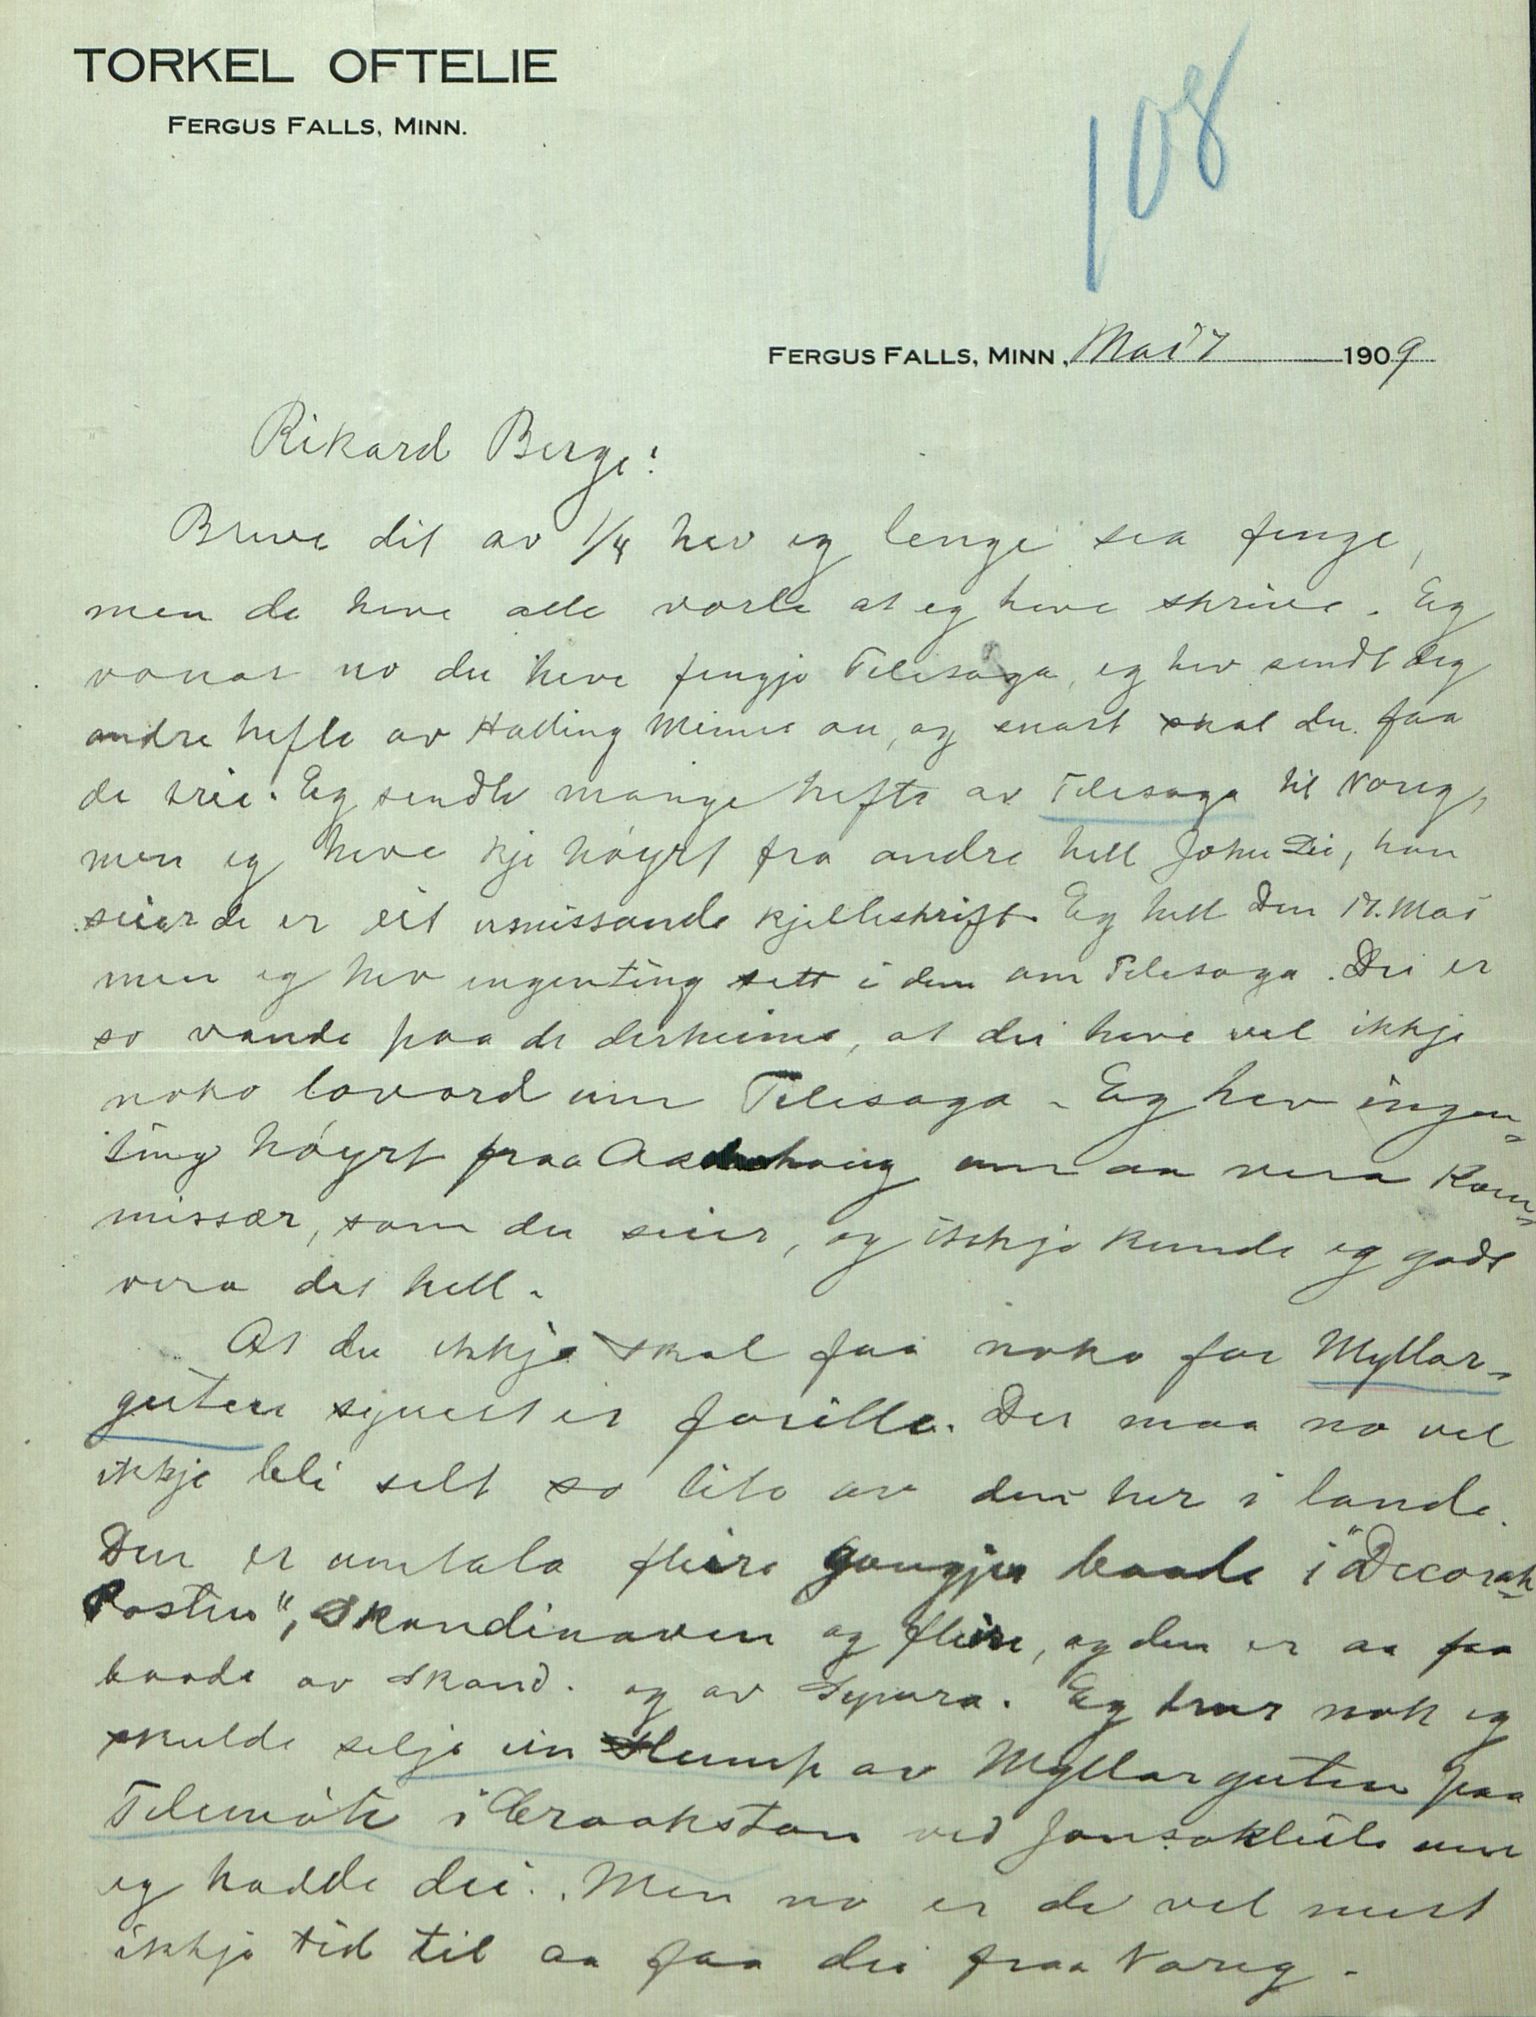 TORKEL OFTELIE
FERGUS FALLS, MINN.
108
FERGUS FALLS, MINN., Mai 7 1909
Rikard Berge!
Breve dit av 1/4 hev eg lenge sea fenge,
men da heve alle vorte at eg heve skrive. Eg
vonar no du heve fengje Telesoga, eg hev sendt deg
andre hefte av Halling Minne au, og snart skal du faa
de trie. Eg sendte mange hefte av Telesoga til Noreg,
men eg heve kje høyrt fra andre hell John Lie, han
seier de er eit umissande kjelleskrift. Eg hell Den 17. Mai
men eg hev ingenting sett i den um Telesoga. Dei er
so vande paa de derheime, at dei heve vel ikkje
noko lovord um Telesoga. Eg hev ingen-
ting høyrt fraa Aschehoug um aa vera kom-
missær, som du seier, og ikkje kunde eg godt
vera det hell.
At du ikkje skal faa noko for Myllar-
guten synest er forille. Der maa no vel
ikkje bli selt so lite av den her i lande.
Den er umtala fleire gongjer baade i "Decorah
Posten", Skandinaven og fleire, og den er aa faa
baade av Skand. og av Relling. Eg trur nok eg
skulde selje ein slump av Myllarguten paa
Telemøte i Crookston ved Jonsokleite um
eg hadde dei. Men no er de vel mest
ikkje tid til aa faa dei fraa Noreg.